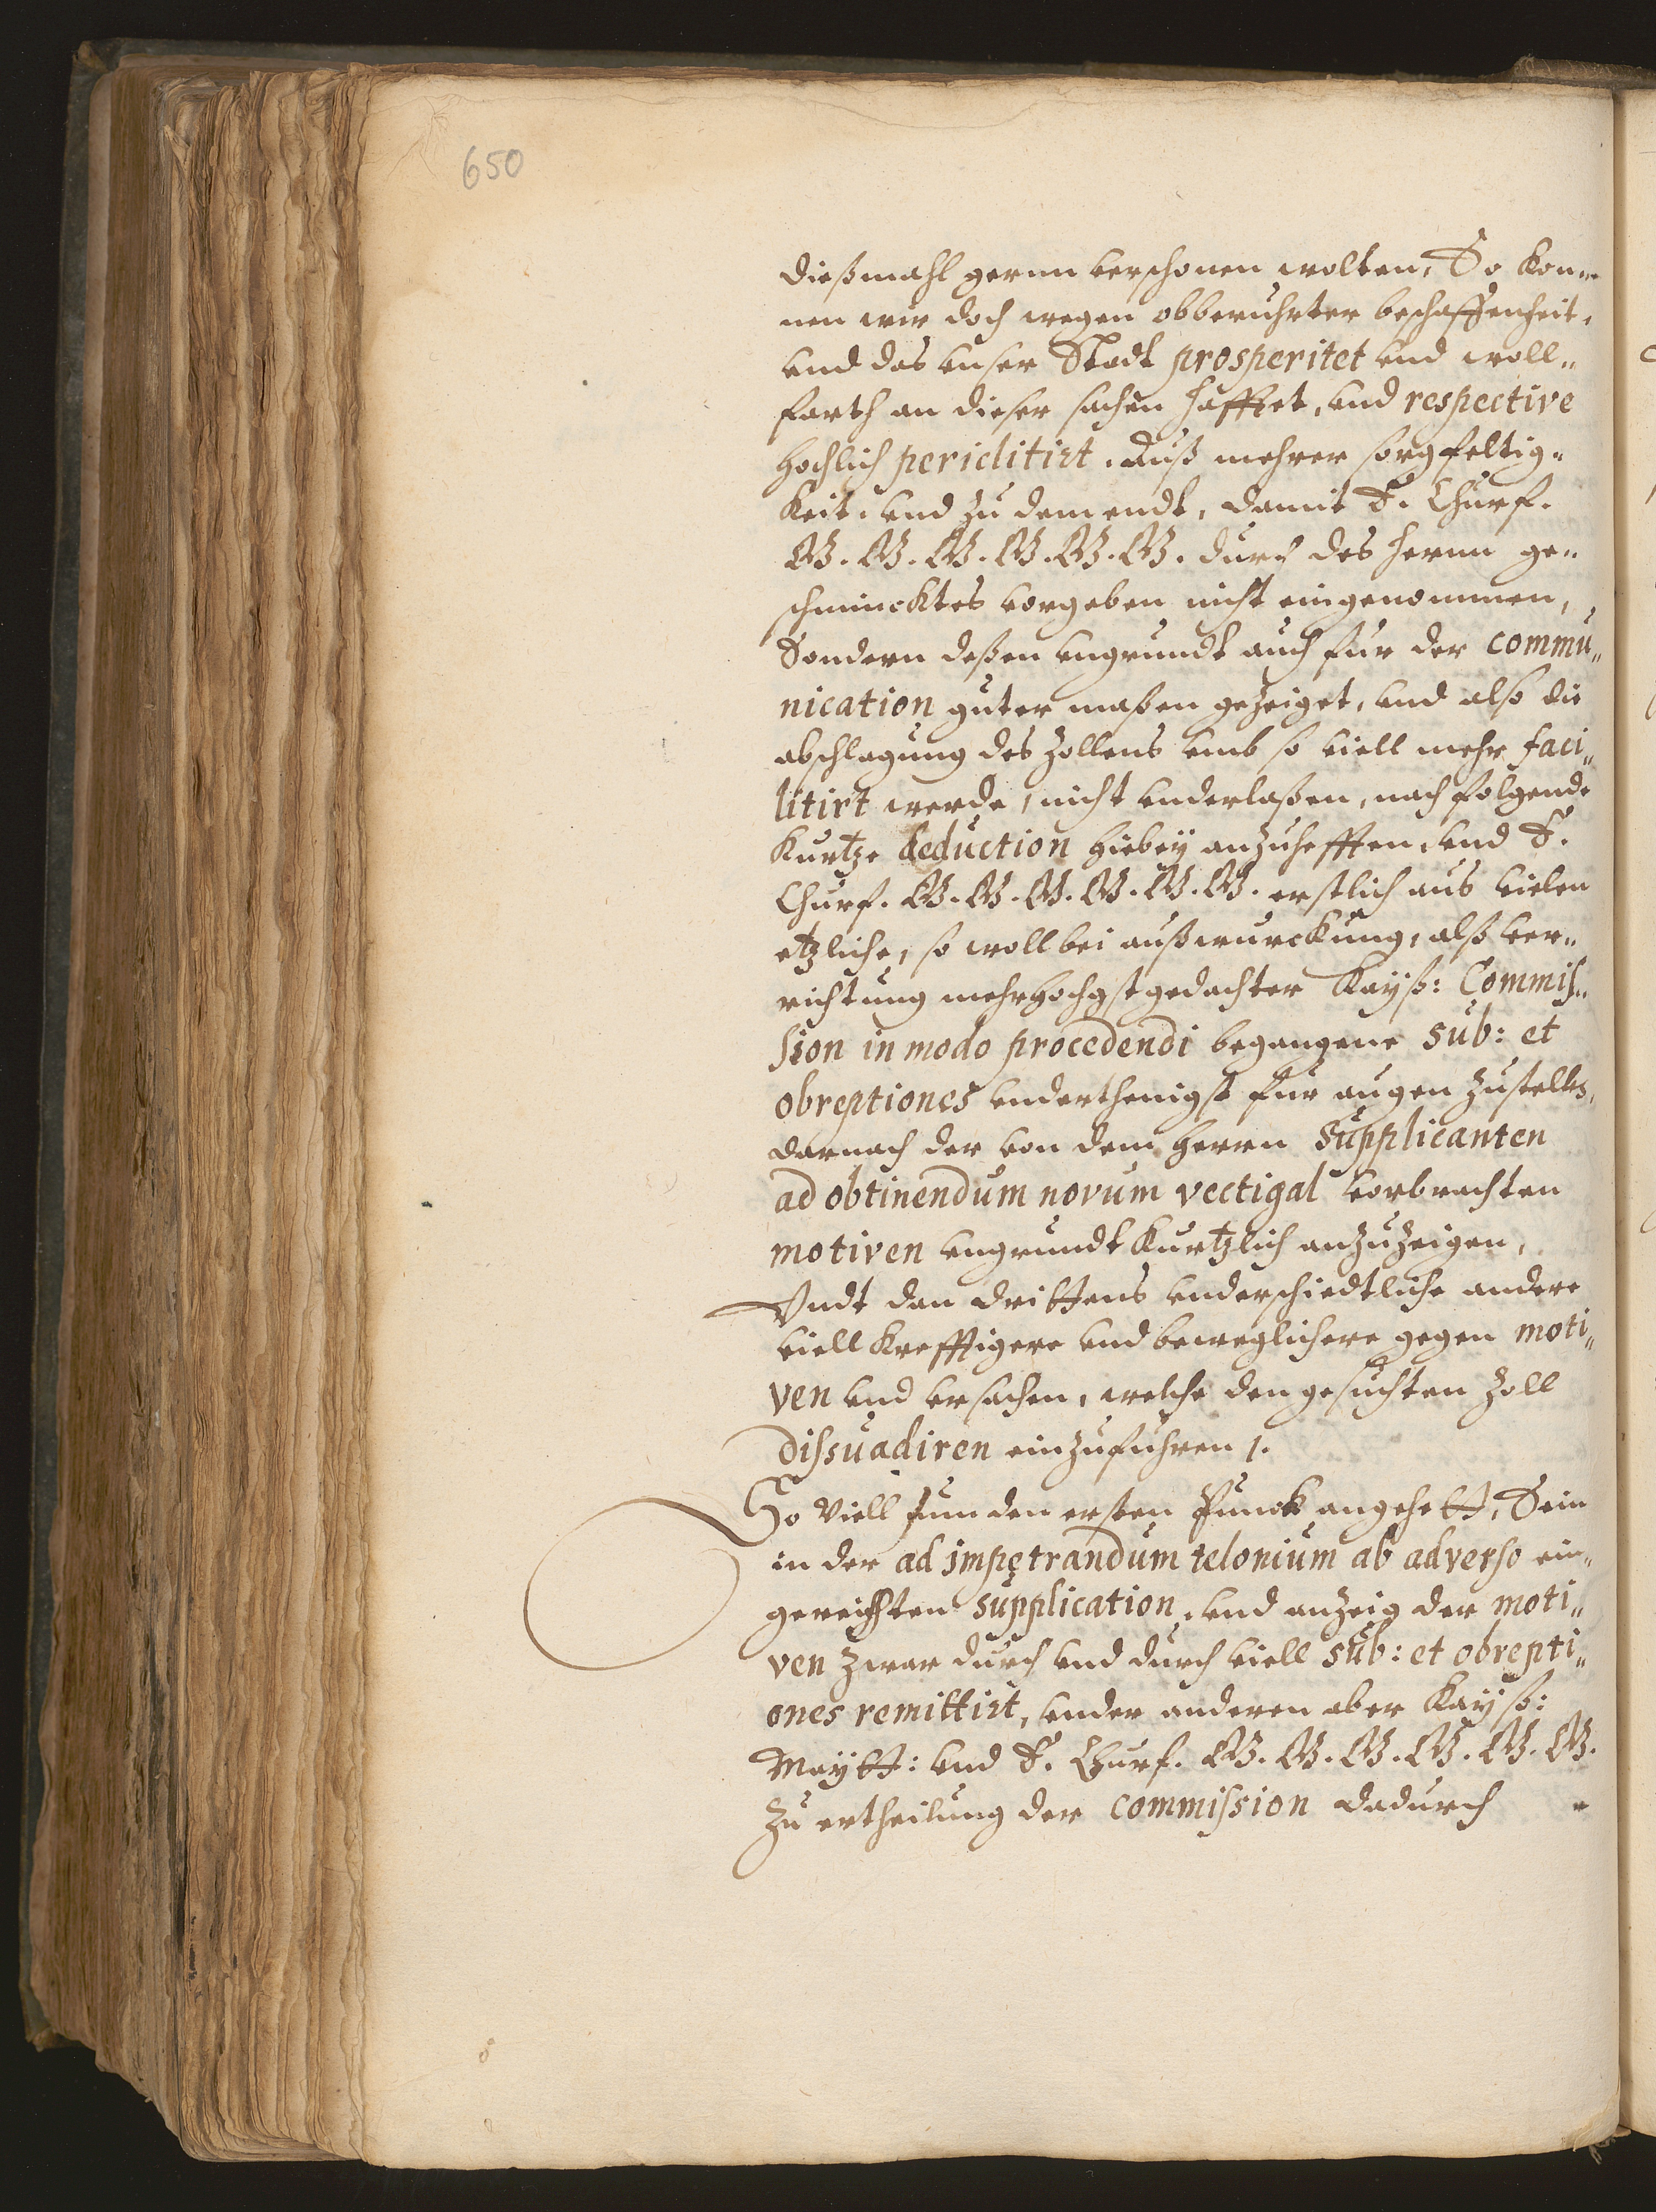 650
dießmahl gernn verschonen wolten, So kon„
nen wir doch wegen obberuhrter beschaffenheit,
vnd das vnser Stadt prosperitet vnd woll„
farth an dieser sachen hafftet, vnd respective
hochlich periclitirt. Auß mehrer sorgfeltig„
keit, vnd zu dem endt, damit E. Churf.
G. G. G. G. G. G. durch des hernn ge„
schmincktes vorgeben nicht eingenommen,
Sondern deßen vngrundt auch fur der commu„
nication guter maßen gezeiget, vnd also die
abschlagung des Zollens vmb so viell mehr faci„
litirt werde, nicht vnderlaßen, nachfolgende
kurtze deduction hiebey anzuhefften, vnd E.
Churf. G. G. G. G. G. G. erstlich aus vielen
etzliche, so woll bei außwurckung, alß ver„
richtung mehrhochgstgedachter Kayß: Commis„
sion in modo procedendi begangene sub: et
obreptiones vnderthenigst fur augen zustellen,
darnach der von dem herrn Supplicanten
ad obtinendum novum vectigal vorbrachten
motiven vngrundt kurtzlich anzuzeigen,
Vndt dan drittens vnderschiedtliche andere
viell krefftigere vnd beweglichere gegen moti„
ven vnd vrsachen, welche den gesuchten Zoll
dissuadiren einzufuhren /.
So Viell nun den ersten Punct angehett, Sein
in der ad impetrandum telonium ab adverso ein„
gereichten supplication, vnd anzeig der moti„
ven zwar durch vnd durch viell sub: et obrepti„
ones remittirt, vnder anderen aber Kayß:
Maytt: vnd E. Churf. G. G. G. G. G. G.
zu ertheilung der commission dadurch